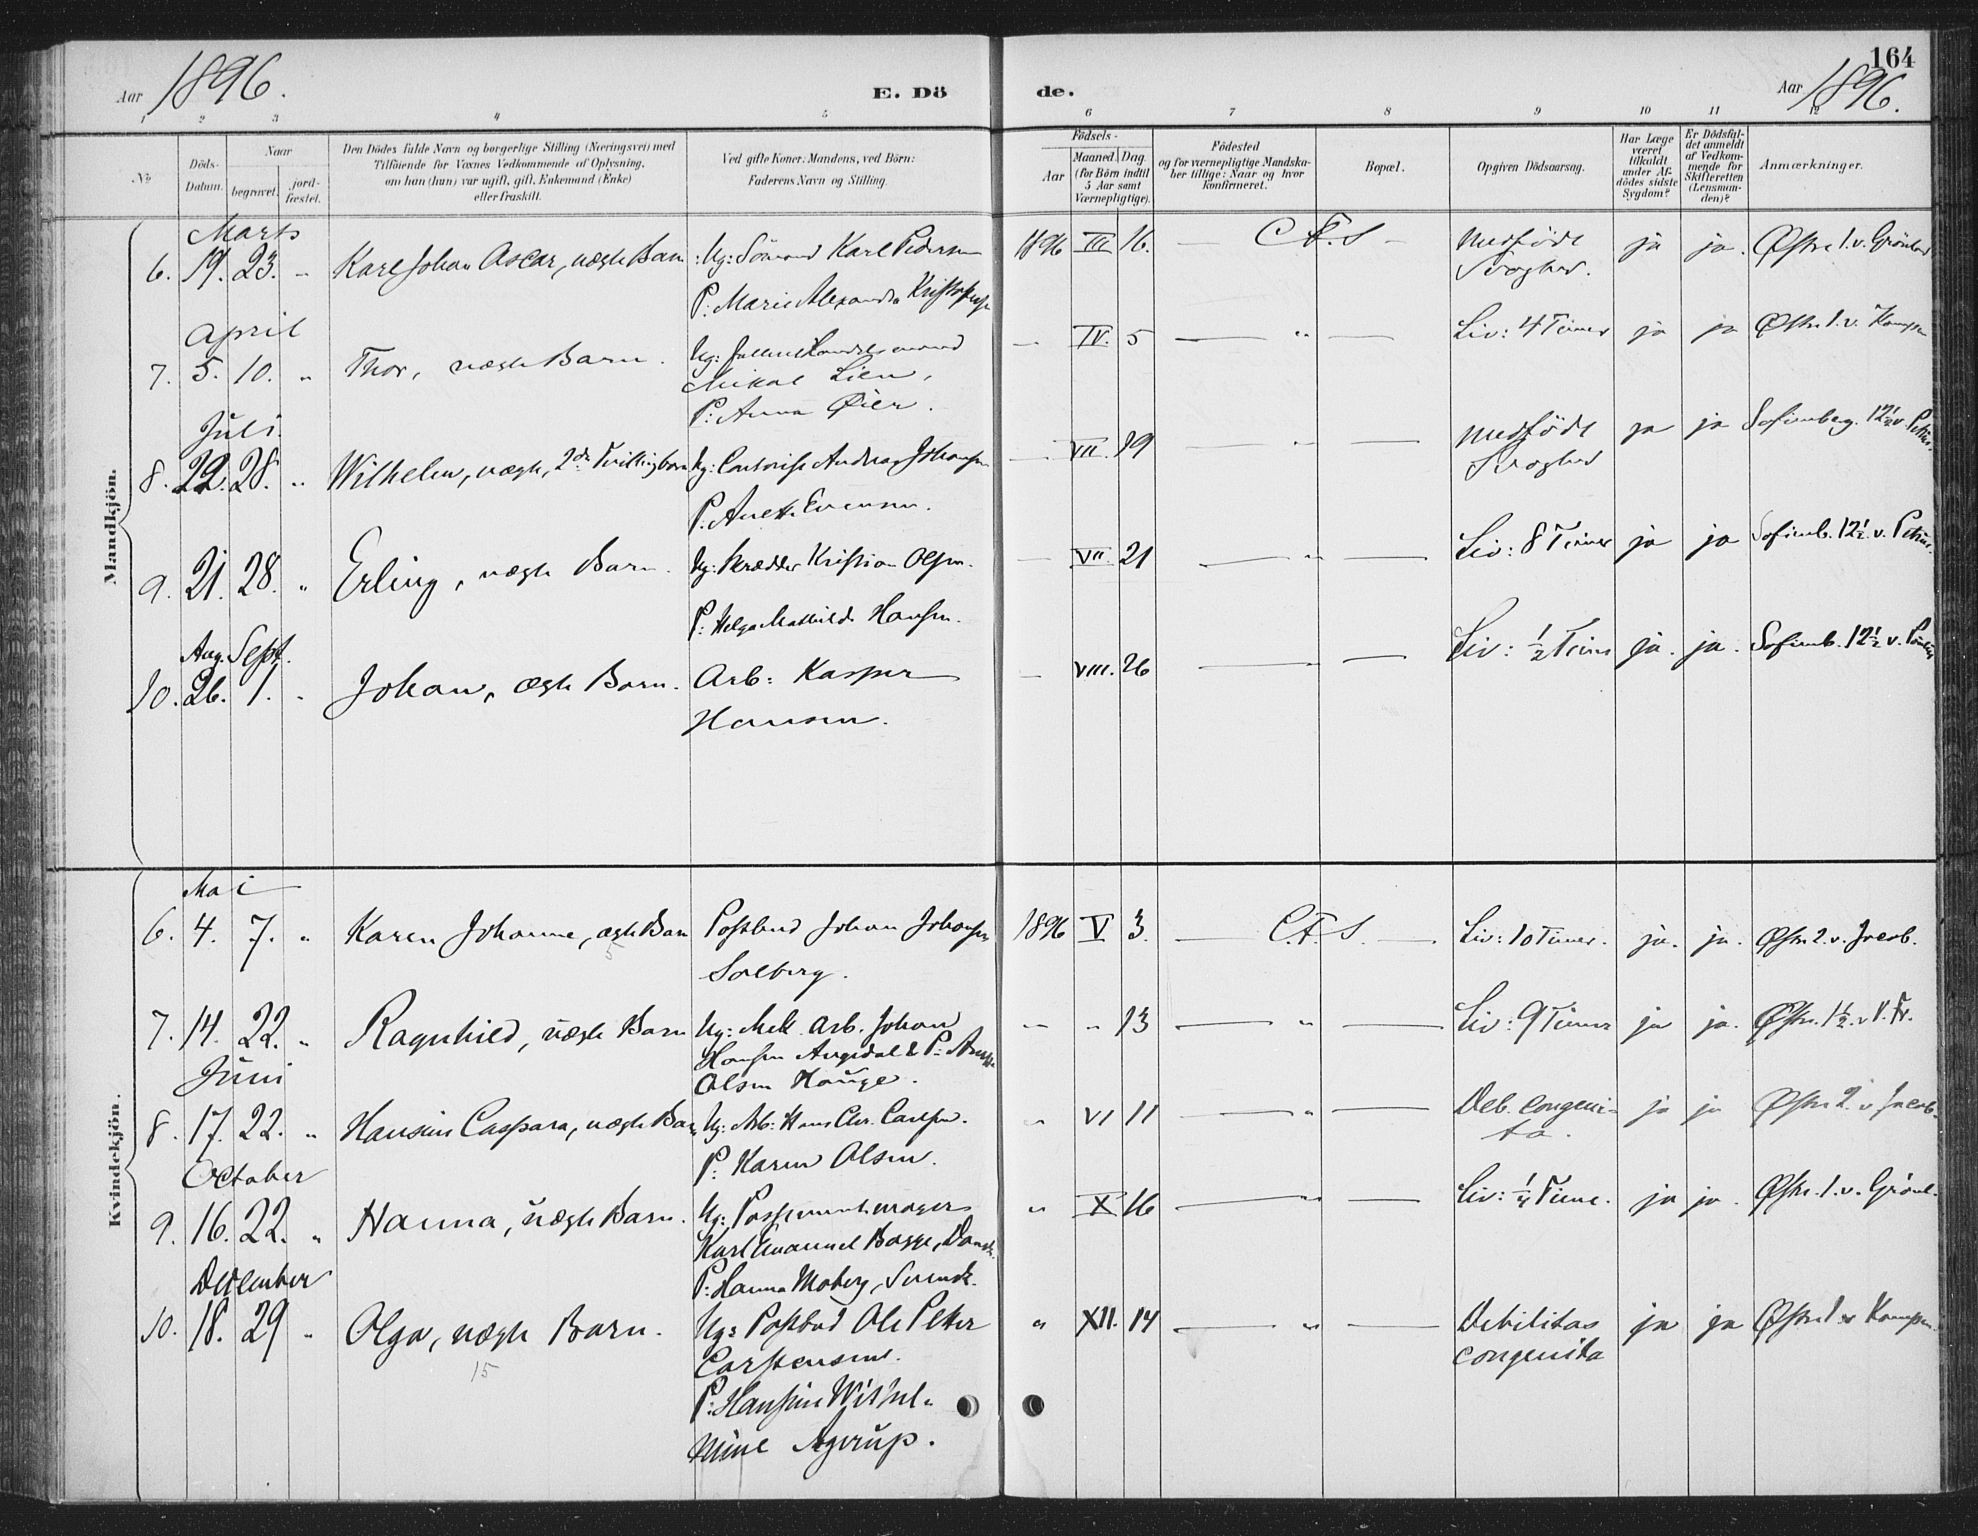 164
Aar 1896. E. Dö de. Aar 1896.
1 2 3 4 5 6 7 8 9 10 11 12
No
Döds-Datum.
Naar
begravet.
jord-fæstet.
Den Dödes fulde Navn og borgerlige Stilling (Næringsvei) med
Tilföiende for Voxnes Vedkommende af Oplysning,
om han (hun) var ugift, gift, Enkemand (Enke)
eller fraskilt.
Ved gifte Koner: Mandens, ved Börn:
Faderens Navn og Stilling.
Födsels-
Aar
Maaned. Dag.
(for Börn indtil
5 Aar samt
Værnepligtige).
Födested
og for værnepligtige Mandska-
ber tillige: Naar og hvor
konfirmeret.
Bopæl.
Opgiven Dödsaarsag.
Har Læge
været
tilkaldt
under Af-
dödes sidste
Sygdom?
Er Dödsfal-
det anmeldt
af Vedkom-
mende for
Skifteretten
(Lensman-
den)?
Anmærkninger.
Mandkjön.
Marts
6. 19. 23. „ Karl Johan Oscar, uægte Barn Ug: Sömand Karl Pedersen 1896 III 16. — C. F. S — Medfödt ja ja. Östre 1. v. Grönland
P: Marie Alexandra Kristophersen Svaghed.
April
7. 5. 10. „ Thor, uægte Barn. Ug: Handelsmand — IV. 5 — „ — Liv: 4 Timer ja ja Östre 1. v. Kampen
Mikal Lien,
P: Anna Øien.
Juli.
8. 22. 28. „ Wilhelm, uægte, 2det Tvillingbarn Ug: Contorist Andreas Johansen — VII. 19 — „ — Medfödt ja ja Sofienberg. 12½ v. Petrus.
P. Anette Evensen. Svaghed
9. 21. 28. „ Erling, uægte Barn. Ug: Skrædder Kristian Olsen. — VII. 21 — „ — Liv: 8 Timer ja ja Sofienb. 12½ v. Petrus.
P: Helga Mathilde Hansen.
Aug. Sept.
10. 26. 1. „ Johan, ægte Barn. Arb: Kasper — VIII. 26 — — Liv: ½ Time ja. ja. Sofienb. 12½ v. Paulus
Hansen.
Kvindekjön.
Mai
6. 4. 7. „ Karen Johanne, ægte Barn Postbud Johan Johansen 1896 V 3. — C. F. S. — Liv: 10 Timer. ja. ja. Östre 2. v. Jacob.
5 Solberg.
7. 14. 22. „ Ragnhild, uægte Barn Ug: Mek. Arb. Johan — „ 13 — „ — Liv: 9 Timer ja ja. Östre. 1½. v. V. Fr.
Hansen Angedal & P:
Olsen Hauge.
Juni
8. 17. 22. „ Hansine Caspara, uægte Barn Ug: Arb: Hans Chr. Carlsen. „ VI 11 — „ — Deb. congeni- ja ja Östre 2. v Jacob.
P: Karen Olsen. ta.
October
9. 16. 22. „ Hanna, uægte Barn. Ug: Possementmager „ X 16 — „ — Liv: ¼ Time. ja ja. Östre. 1. v. Grönl.
Karl Emanuel Bagge, Dansk.
P: Hanna Moberg, Svensk.
December
10. 18. 29 „ Olga, uægte Barn. Ug: Postbud Ole Peter „ XII. 14 — „ — Debilitas ja ja Östre 1 v Kampen.
15 Carstensen. congenita
P: Hansine Wilhel-
mine Agerup.